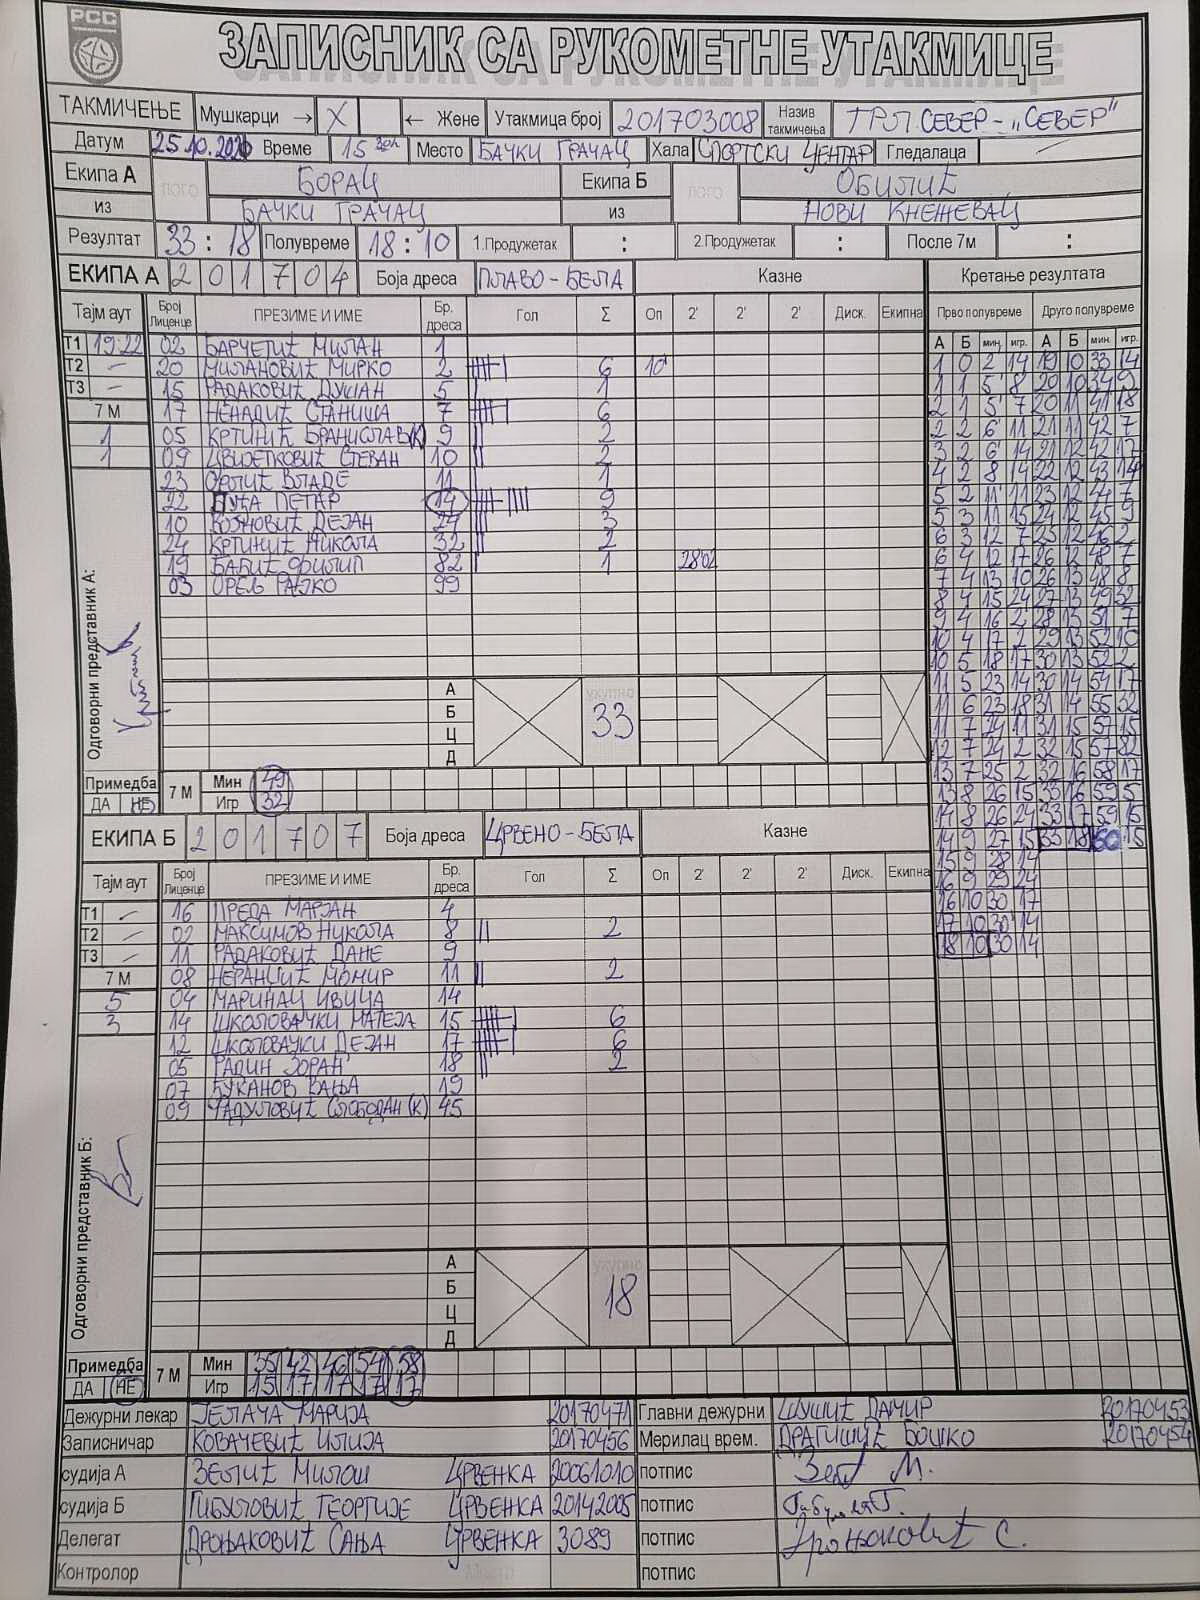 РСС
ЗАПИСНИК СА РУКОМЕТНЕ УТАКМИЦЕ
ТАКМИЧЕЊЕ Мушкарци → X ← Жене Утакмица број 201703008 Назив такмичења ТРЛ СЕВЕР - „СЕВЕР"
Датум 25.10.2020 Време 15 30h Место БАЧКИ ГРАЧАЦ Хала СПОРТСКИ ЦЕНТАР Гледалаца —
Екипа А ЛОГО БОРАЦ Екипа Б ЛОГО ОБИЛИЋ
из БАЧКИ ГРАЧАЦ из НОВИ КНЕЖЕВАЦ
Резултат 33 : 18 Полувреме 18 : 10 1.Продужетак : 2.Продужетак : После 7м :
ЕКИПА А 2 0 1 7 0 4 Боја дреса ПЛАВО - БЕЛА Казне Кретање резултата
Тајм аут Број Лиценце ПРЕЗИМЕ И ИМЕ Бр. дреса Гол Σ Оп 2' 2' 2' Диск. Екипна Прво полувреме Друго полувреме
А Б мин. игр. А Б мин. игр.
Т1 19:22 02 БАРЧЕТИЋ МИЛАН 1
Т2 — 20 МИЛАНОВИЋ МИРКО 2 6 10'
Т3 — 15 РАДАКОВИЋ ДУШАН 5 1
7 М 17 НЕНАДИЋ СТАНИША 7 6
1 05 КРТИНИЋ БРАНИСЛАВ(К) 9 2
1 09 ЦВИЈЕТКОВИЋ СТЕВАН 10 2
23 ОРЛИЋ ВЛАДЕ 11 1
22 ПУЂА ПЕТАР 14 9
10 КОЈНОВИЋ ДЕЈАН 24 3
24 КРТИНИЋ НИКОЛА 32 2
19 БАБИЋ ФИЛИП 82 1 28:02
03 ОРЕЉ РАЈКО 99
Одговорни представник А:
А
Б
Ц
Д
укупно
33
Примедба ДА НЕ 7 М Мин 49
Игр 32
1 0 2 14 19 10 33 14
1 1 5' 8 20 10 34 9
2 1 5' 7 20 11 41 18
2 2 6' 11 21 11 42 7
3 2 6' 14 21 12 42 17
4 2 8 14 22 12 43 14
5 2 11' 11 23 12 44 7
5 3 11 15 24 12 45 9
6 3 12 7 25 12 46 2
6 4 12 17 26 12 48 7
7 4 13 10 26 13 48 8
8 4 15 24 27 13 49 32
9 4 16 2 28 13 51 7
10 4 17 2 29 13 52 10
10 5 18 17 30 13 52 2
11 5 23 14 30 14 54 17
11 6 23 18 31 14 55 32
11 7 24 11 31 15 57 15
12 7 24 2 32 15 57 82
13 7 25 2 32 16 58 17
13 8 26 15 33 16 59 5
14 8 26 24 33 17 59 15
14 9 27 15 33 18 60 15
15 9 28 14
16 9 29 24
16 10 30 17
17 10 30' 14
18 10 30 14
ЕКИПА Б 2 0 1 7 0 7 Боја дреса ЦРВЕНО - БЕЛА Казне
Тајм аут Број Лиценце ПРЕЗИМЕ И ИМЕ Бр. дреса Гол Σ Оп 2' 2' 2' Диск. Екипна
Т1 — 16 ПРЕДА МАРЈАН 4
Т2 — 02 МАКСИМОВ НИКОЛА 8 2
Т3 — 11 РАДАКОВИЋ ДАНЕ 9
7 М 08 НЕРАНЏИЋ МОМИР 11 2
5 04 МАРИНАЦ ИВИЦА 14
3 14 ШКОЛОВАЧКИ МАТЕЈА 15 6
12 ШКОЛОВАЧКИ ДЕЈАН 17 6
05 РАДИН ЗОРАН 18 2
07 ВУКАНОВ ВАЊА 19
09 РАДУЛОВИЋ СЛОБОДАН (К) 45
Одговорни представник Б:
А
Б
Ц
Д
укупно
18
Примедба ДА НЕ 7 М Мин 35 42 46 54 58
Игр 15 17 17 17 17
Дежурни лекар ЈЕЛАЧА МАРИЈА 20170471 Главни дежурни ШУШИЋ ДАМИР 20170453
Записничар КОВАЧЕВИЋ ИЛИЈА 20170456 Мерилац врем. ДРАГИШИЋ БОШКО 20170454
судија А ЗЕЛИЋ МИЛОШ ЦРВЕНКА 20061010 потпис
судија Б ГИБУЛОВИЋ ГЕОРГИЈЕ ЦРВЕНКА 20142005 потпис
Делегат ДРОЊАКОВИЋ САЊА ЦРВЕНКА 3089 потпис Дроњаковић С.
Контролор потпис